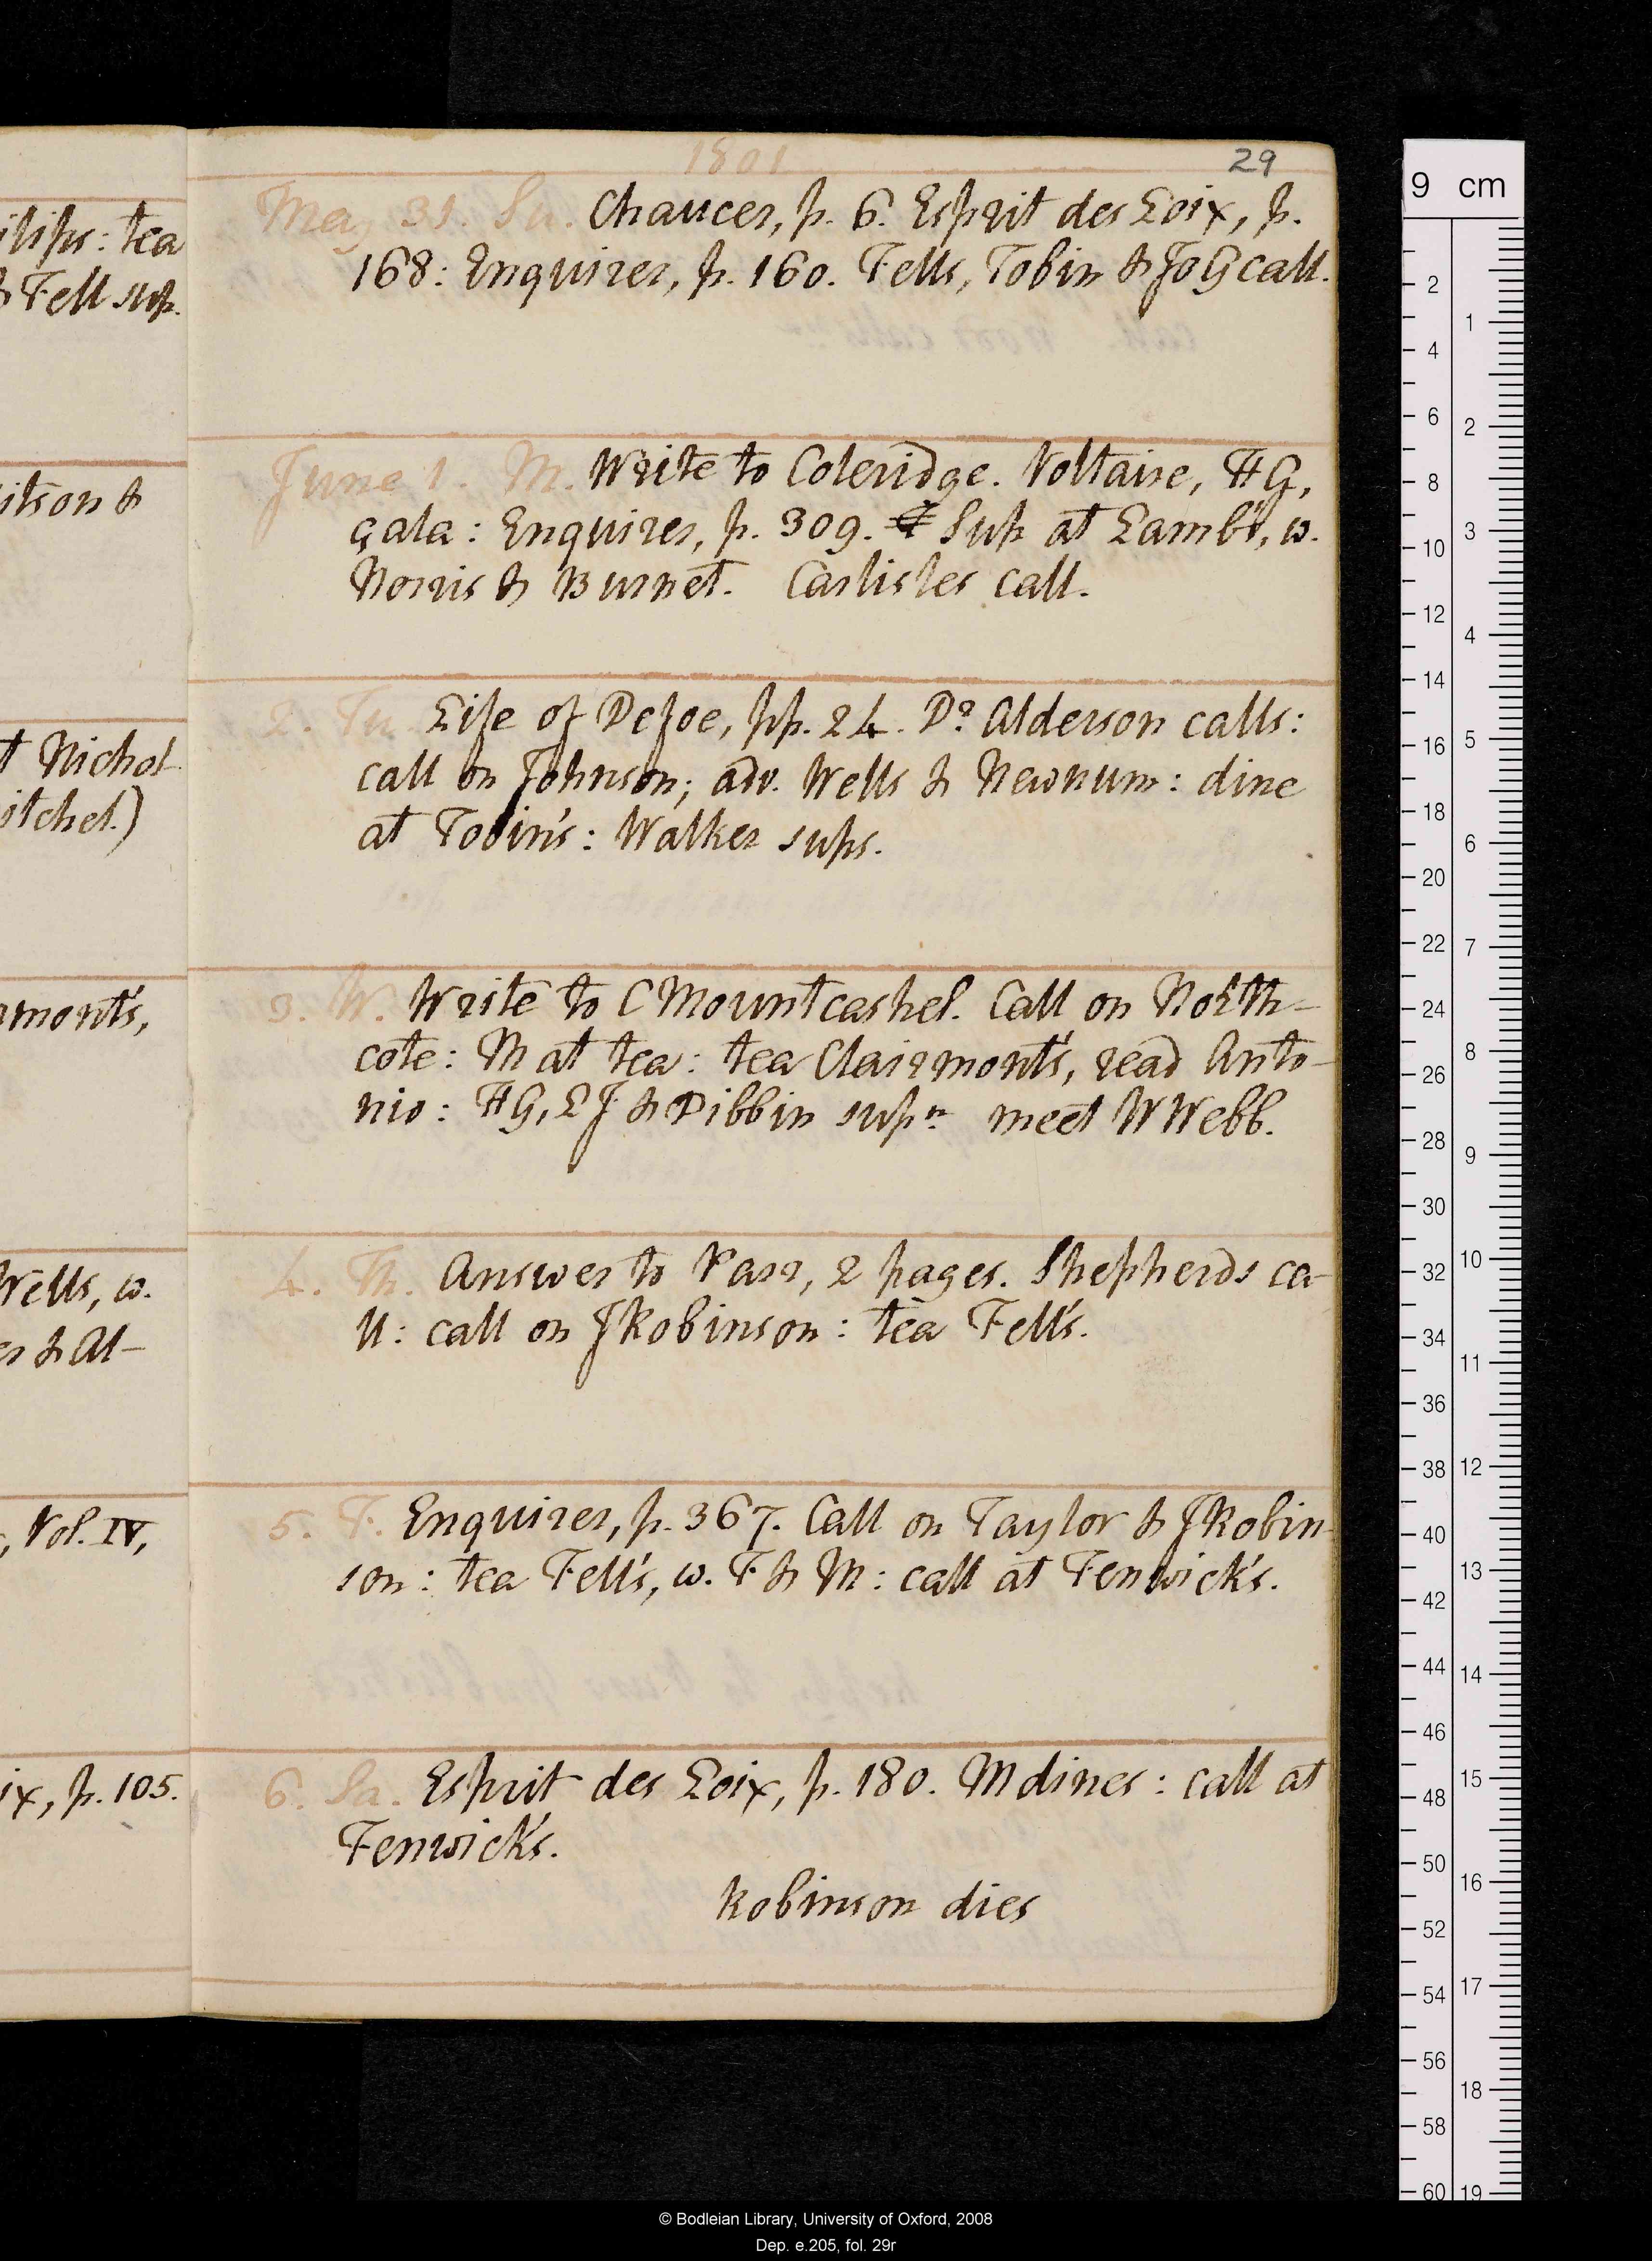 ilips: tea
& Fell sup.
itson &
t Nichol
itchel.)
rmont's,
Wells, w.
es & Al-
, Vol. IV,
ix, p. 105.
1801
29
May 31. Su. Chaucer, p. 6. Esprit des Loix, p.
168: Enquirer, p. 160. Fells, Tobin & JoG call.
June 1. M. Write to Coleridge. Voltaire, HG,
çala: Enquirer, p. 309. Sup at Lamb's, w.
Norris & Burnet. Carlisles call.
2. Tu. Life of Defoe, pp. 24. Dr Alderson calls:
call on Johnson; adv. Wells & Newnum: dine
at Tobin's: Walker sups.
3. W. Write to C Mountcashel. Call on North-
cote: M at tea: tea Clairmont's, read Anto-
nio: HG, LJ & Dibbin supn meet W Webb.
4. Th. Answer to Parr, 2 pages. Shepherds ca-
ll: call on J Robinson: tea Fell's.
5. F. Enquirer, p. 367. Call on Taylor & J Robin-
son: tea Fell's, w. F & M: call at Fenwick's.
6. Sa. Esprit des Loix, p. 180. M dines: call at
Fenwick's.
Robinson dies
9 cm
2
4
6
8
10
12
14
16
18
20
22
24
26
28
30
32
34
36
38
40
42
44
46
48
50
52
54
56
58
60
1
2
3
4
5
6
7
8
9
10
11
12
13
14
15
16
17
18
19
© Bodleian Library, University of Oxford, 2008
Dep. e.205, fol. 29r